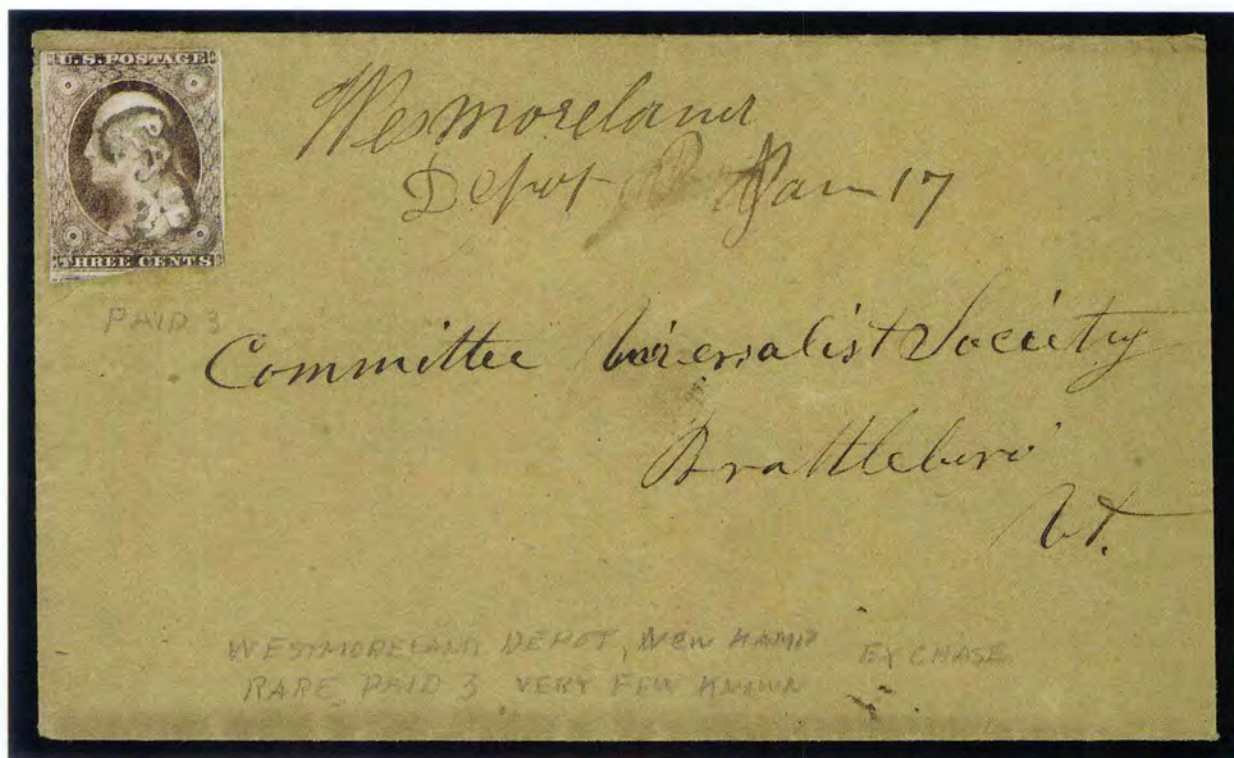 U.S. POSTAGE
THREE CENTS
PAID 3
Wesmoreland
Depot Jan 17
Committee Universalist Society
Brattleboro
Vt.
WESTMORELAND DEPOT, NEW HAMP
EX CHASE
RARE PAID 3 VERY FEW KNOWN